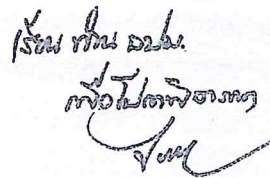 เรียน ท่าน อปม.
เพื่อโปรดพิจารณา